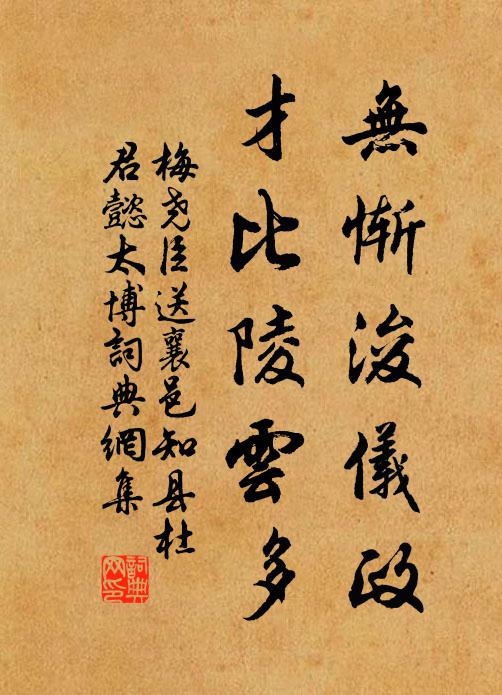 無慚浚儀政
才比陵雲多
梅尧臣送襄邑知县杜
君懿太博詞典網集
詞典
网印